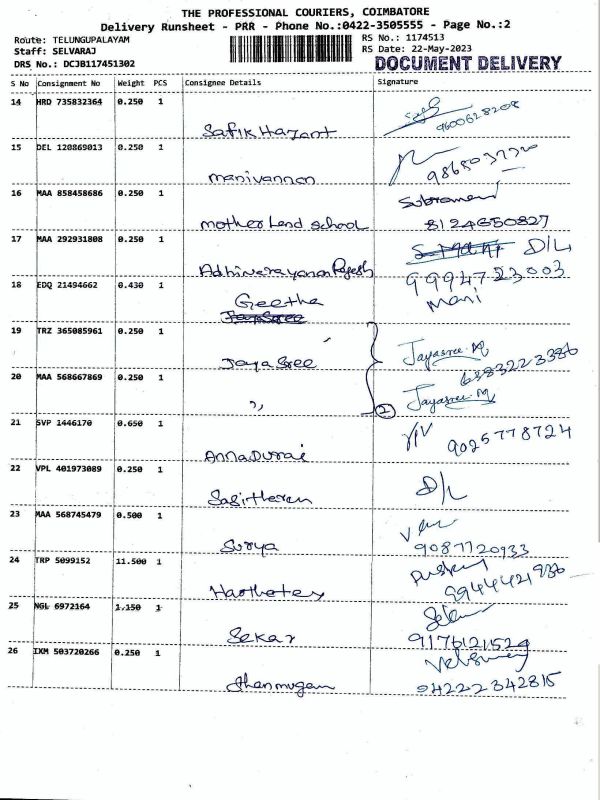 THE PROFESSIONAL COURIERS, COIMBATORE
Delivery Runsheet - PRR - Phone No.:0422-3505555 - Page No.:2
Route: TELUNGUPALAYAM RS No.: 1174513
Staff: SELVARAJ RS Date: 22-May-2023
DRS No.: DCJB117451302 DOCUMENT DELIVERY
S No Consignment No Weight PCS Consignee Details Signature
14 HRD 735832364 0.250 1
Safik Hazant 9600628208
15 DEL 120869013 0.250 1
manivannan
16 MAA 858458686 0.250 1 Subramani
mother land school 8124650827
17 MAA 292931808 0.250 1 D/L
Rajesh 9994723003
18 EDQ 21494662 0.430 1 Mani
Geetha
Jaya Sree
19 TRZ 365085961 0.250 1
Jaya Sree Jayasree.M 6383223386
20 MAA 568667869 0.250 1
,, 2 Jayasree.M
21 SVP 1446170 0.650 1
AnnaDurai 9025778724
22 VPL 401973089 0.250 1
Sasitharan D/L
23 MAA 568745479 0.500 1
Surya 9087720933
24 TRP 5099152 11.500 1
9944421936
25 NGL 6972164 1.150 1
Sekar 9176121529
26 IXM 503720266 0.250 1
Shanmugam 94222342815